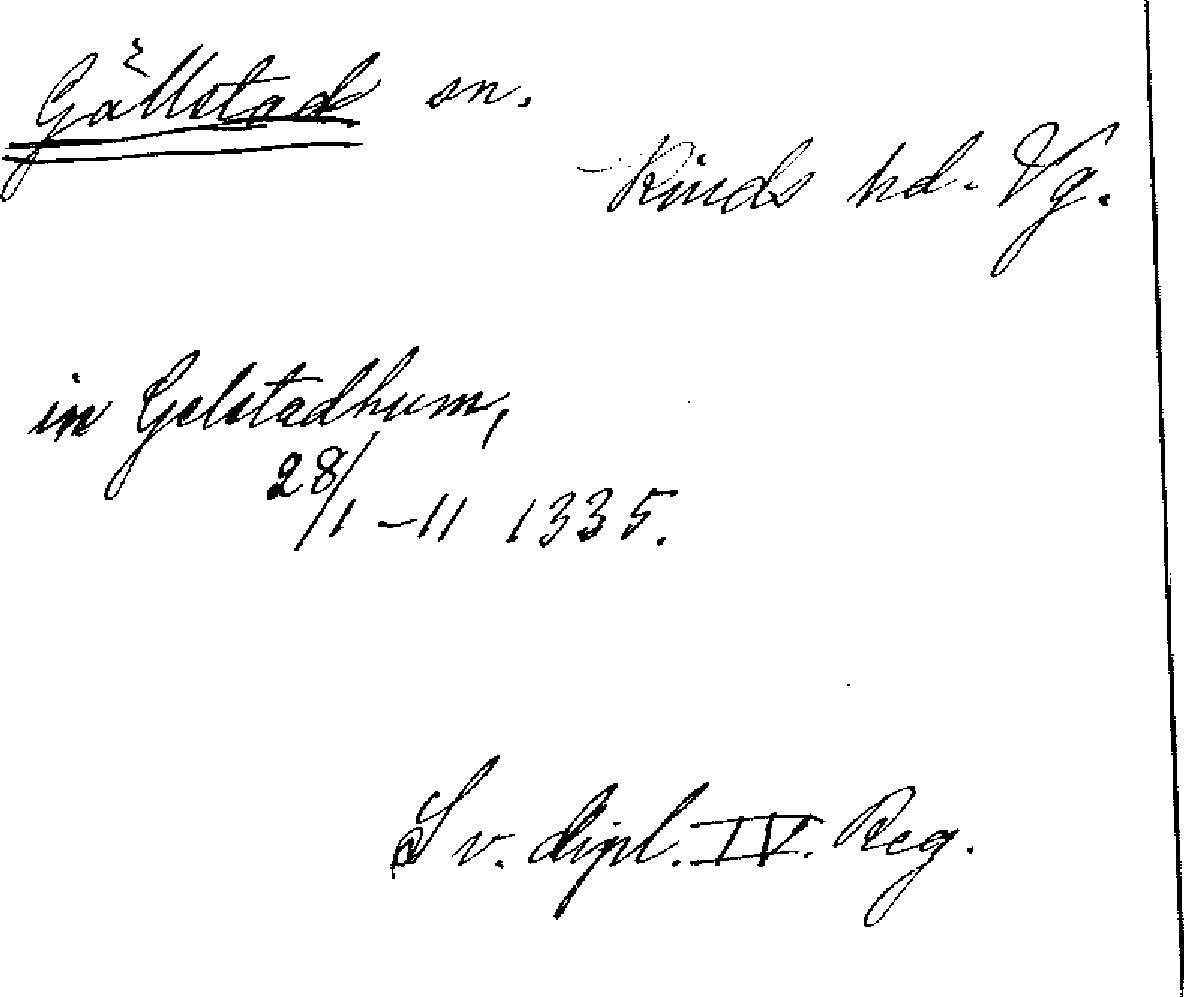 Gällstad sn.
Kinds hd. Vg.
in Gelstadhum,
28/1 - 11 1335.
Sv. dipl. IV. Reg.